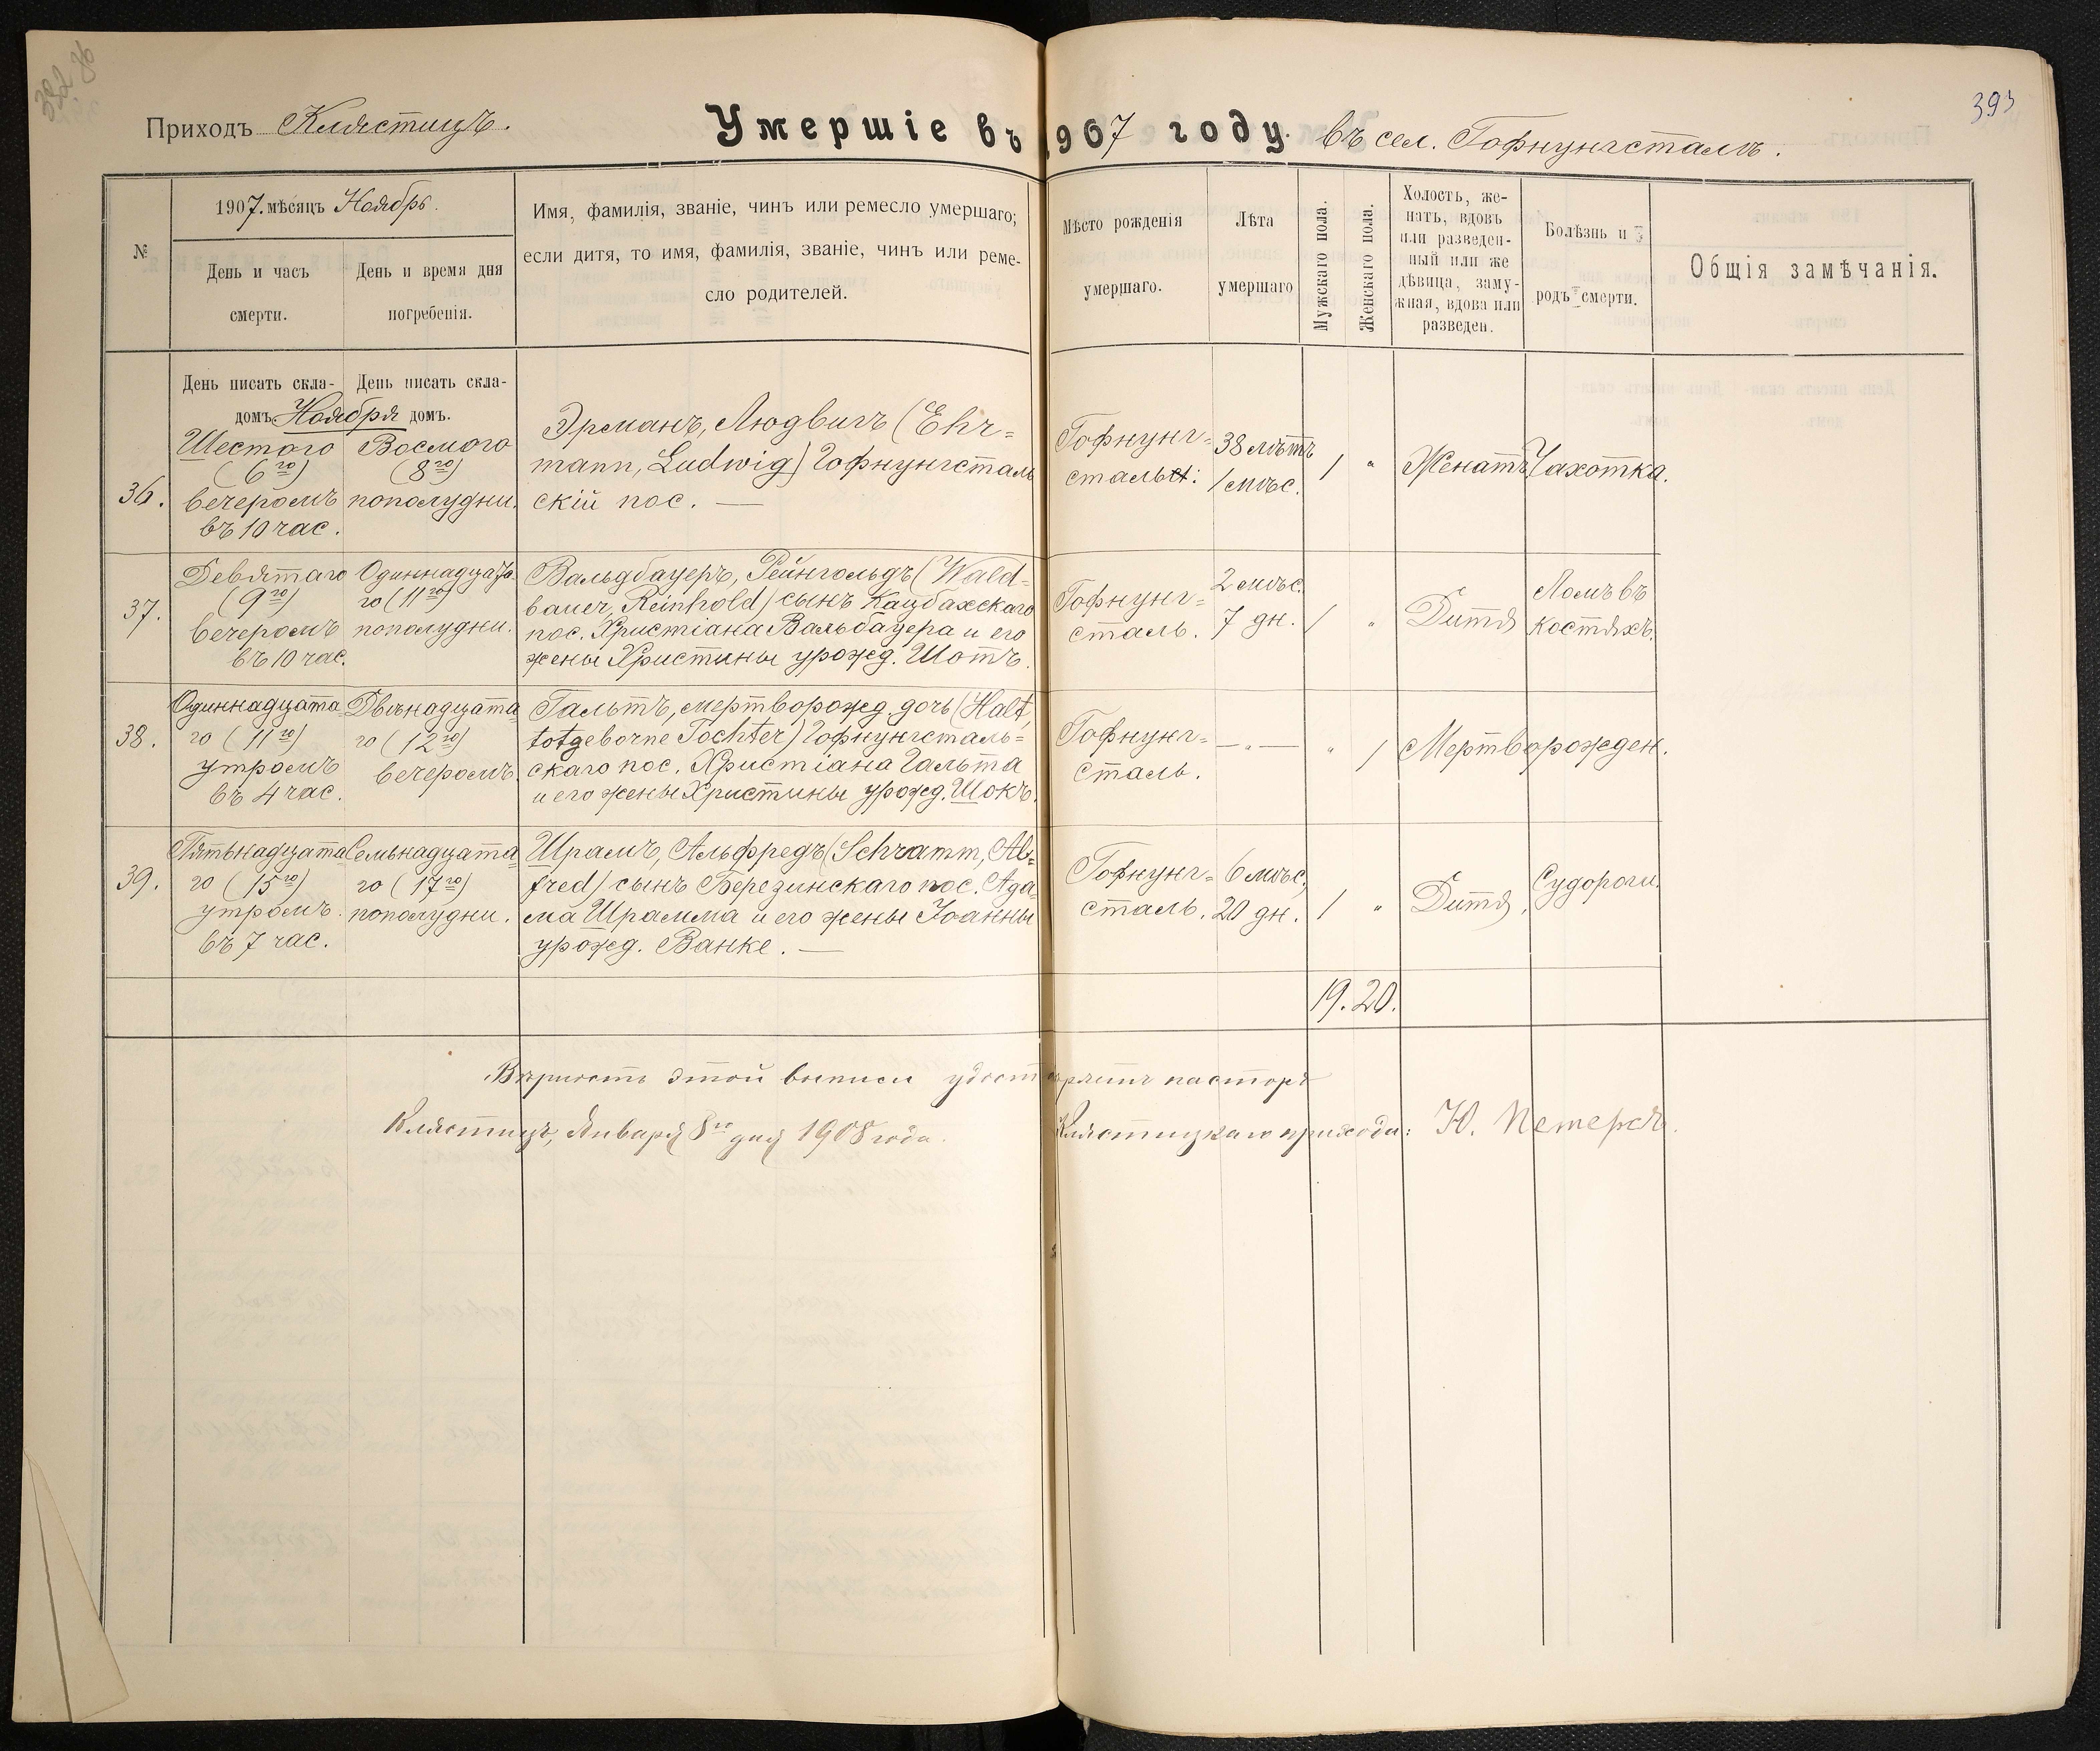 Приходъ Клястицъ.
Умершіе въ 1907 году. въ сел. Гофнунгсталъ.
393
№
1907. мѣсяцъ Ноябрь.
День и часъ
смерти.
День и время дня
погребенія.
Имя, фамилія, званіе, чинъ или ремесло умершаго;
если дитя, то имя, фамилія, званіе, чинъ или реме-
сло родителей.
Мѣсто рожденія
умершаго.
Лѣта
умершаго
Мужскаго пола.
Женскаго пола.
Холостъ, же-
натъ, вдовъ
или разведен-
ный или же
дѣвица, заму-
жняя, вдова или
разведен.
Болѣзнь и
родъ смерти.
Общія замѣчанія.
День писать скла-
домъ
День писать скла-
домъ.
Ноября
36.
Шестого
(6го)
вечеромъ
въ 10 час.
Восмого
(8го)
пополудни.
Эрманъ, Людвигъ (Ehr=
mann, Ludwig) Гофнунгсталь
скій пос. —
Гофнунг=
сталь
38 лѣтъ
1 мѣс.
1
"
Женатъ
Чахотка.
37.
Девятаго
(9го)
вечеромъ
въ 10 час.
Одиннадцата
го (11го)
пополудни.
Вальдбауеръ, Рейнгольдъ (Wald-
bauer, Reinhold) сынъ Кацбахскаго
пос. Христіана Вальбауера и его
жены Христины урожд. Шотъ.
Гофнунг=
сталь.
2 мѣс.
7 дн.
1
"
Дитя
Ломъ въ
костяхъ.
38.
Одиннадцата
го (11го)
утромъ
въ 4 час.
Двѣнадцата=
го (12го)
вечеромъ.
Гальтъ, мертворожд. дочь (Halt,
totgeborne Tochter) Гофнунгсталь=
скаго пос. Христіана Гальта
и его жены Христины урожд. Шокъ.
Гофнунг=
сталь.
— " —
"
1
Мертворожден.
39.
Пятьнадцата
го (15го)
утромъ
въ 7 час.
Семьнадцата=
го (17го)
пополудни.
Шрамъ, Альфредъ (Schramm, Al=
fred) сынъ Березинскаго пос. Ада=
ма Шрамма и его жены Іоанны
урожд. Ванке. —
Гофнунг=
сталь.
6 мѣс.
20 дн.
1
"
Дитя.
Судороги.
19. 20.
Вѣрность этой выписи удостовѣряетъ пасторъ
Клястицъ, Января 8го дня 1908 года.
Клястицкаго прихода: Ю. Петерсъ.